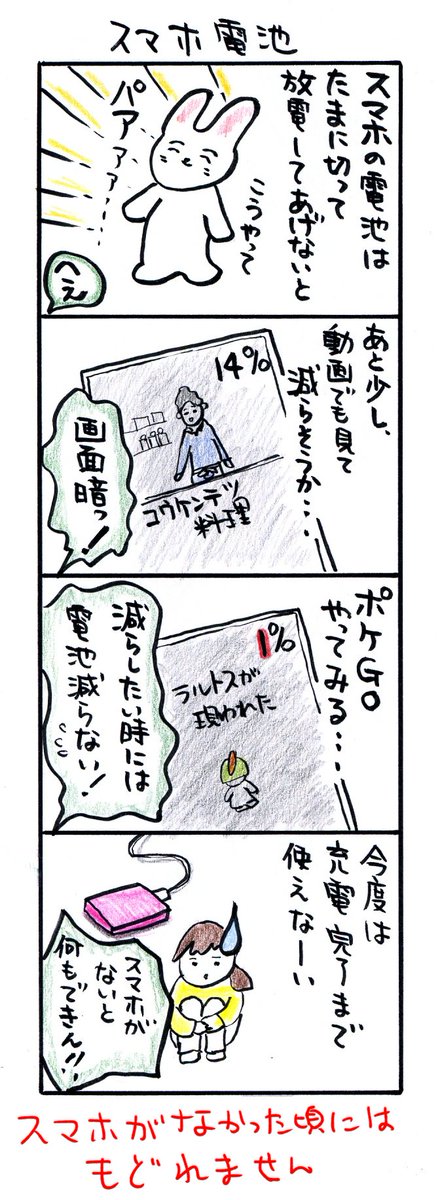 スマホ電池
スマホの電池は
たまに切って
放電してあげないと
こうやって
パアァァァ…
へえ
あと少し、
動画でも見て
減らそうか…
14%
コウケンテツ
料理
画面暗っ!
ポケGO
やってみる…
1%
ラルトスが
現われた
減らしたい時には
電池減らない!
今度は
充電完了まで
使えなーい
スマホが
ないと
何もできん!!
スマホがなかった頃には
もどれません